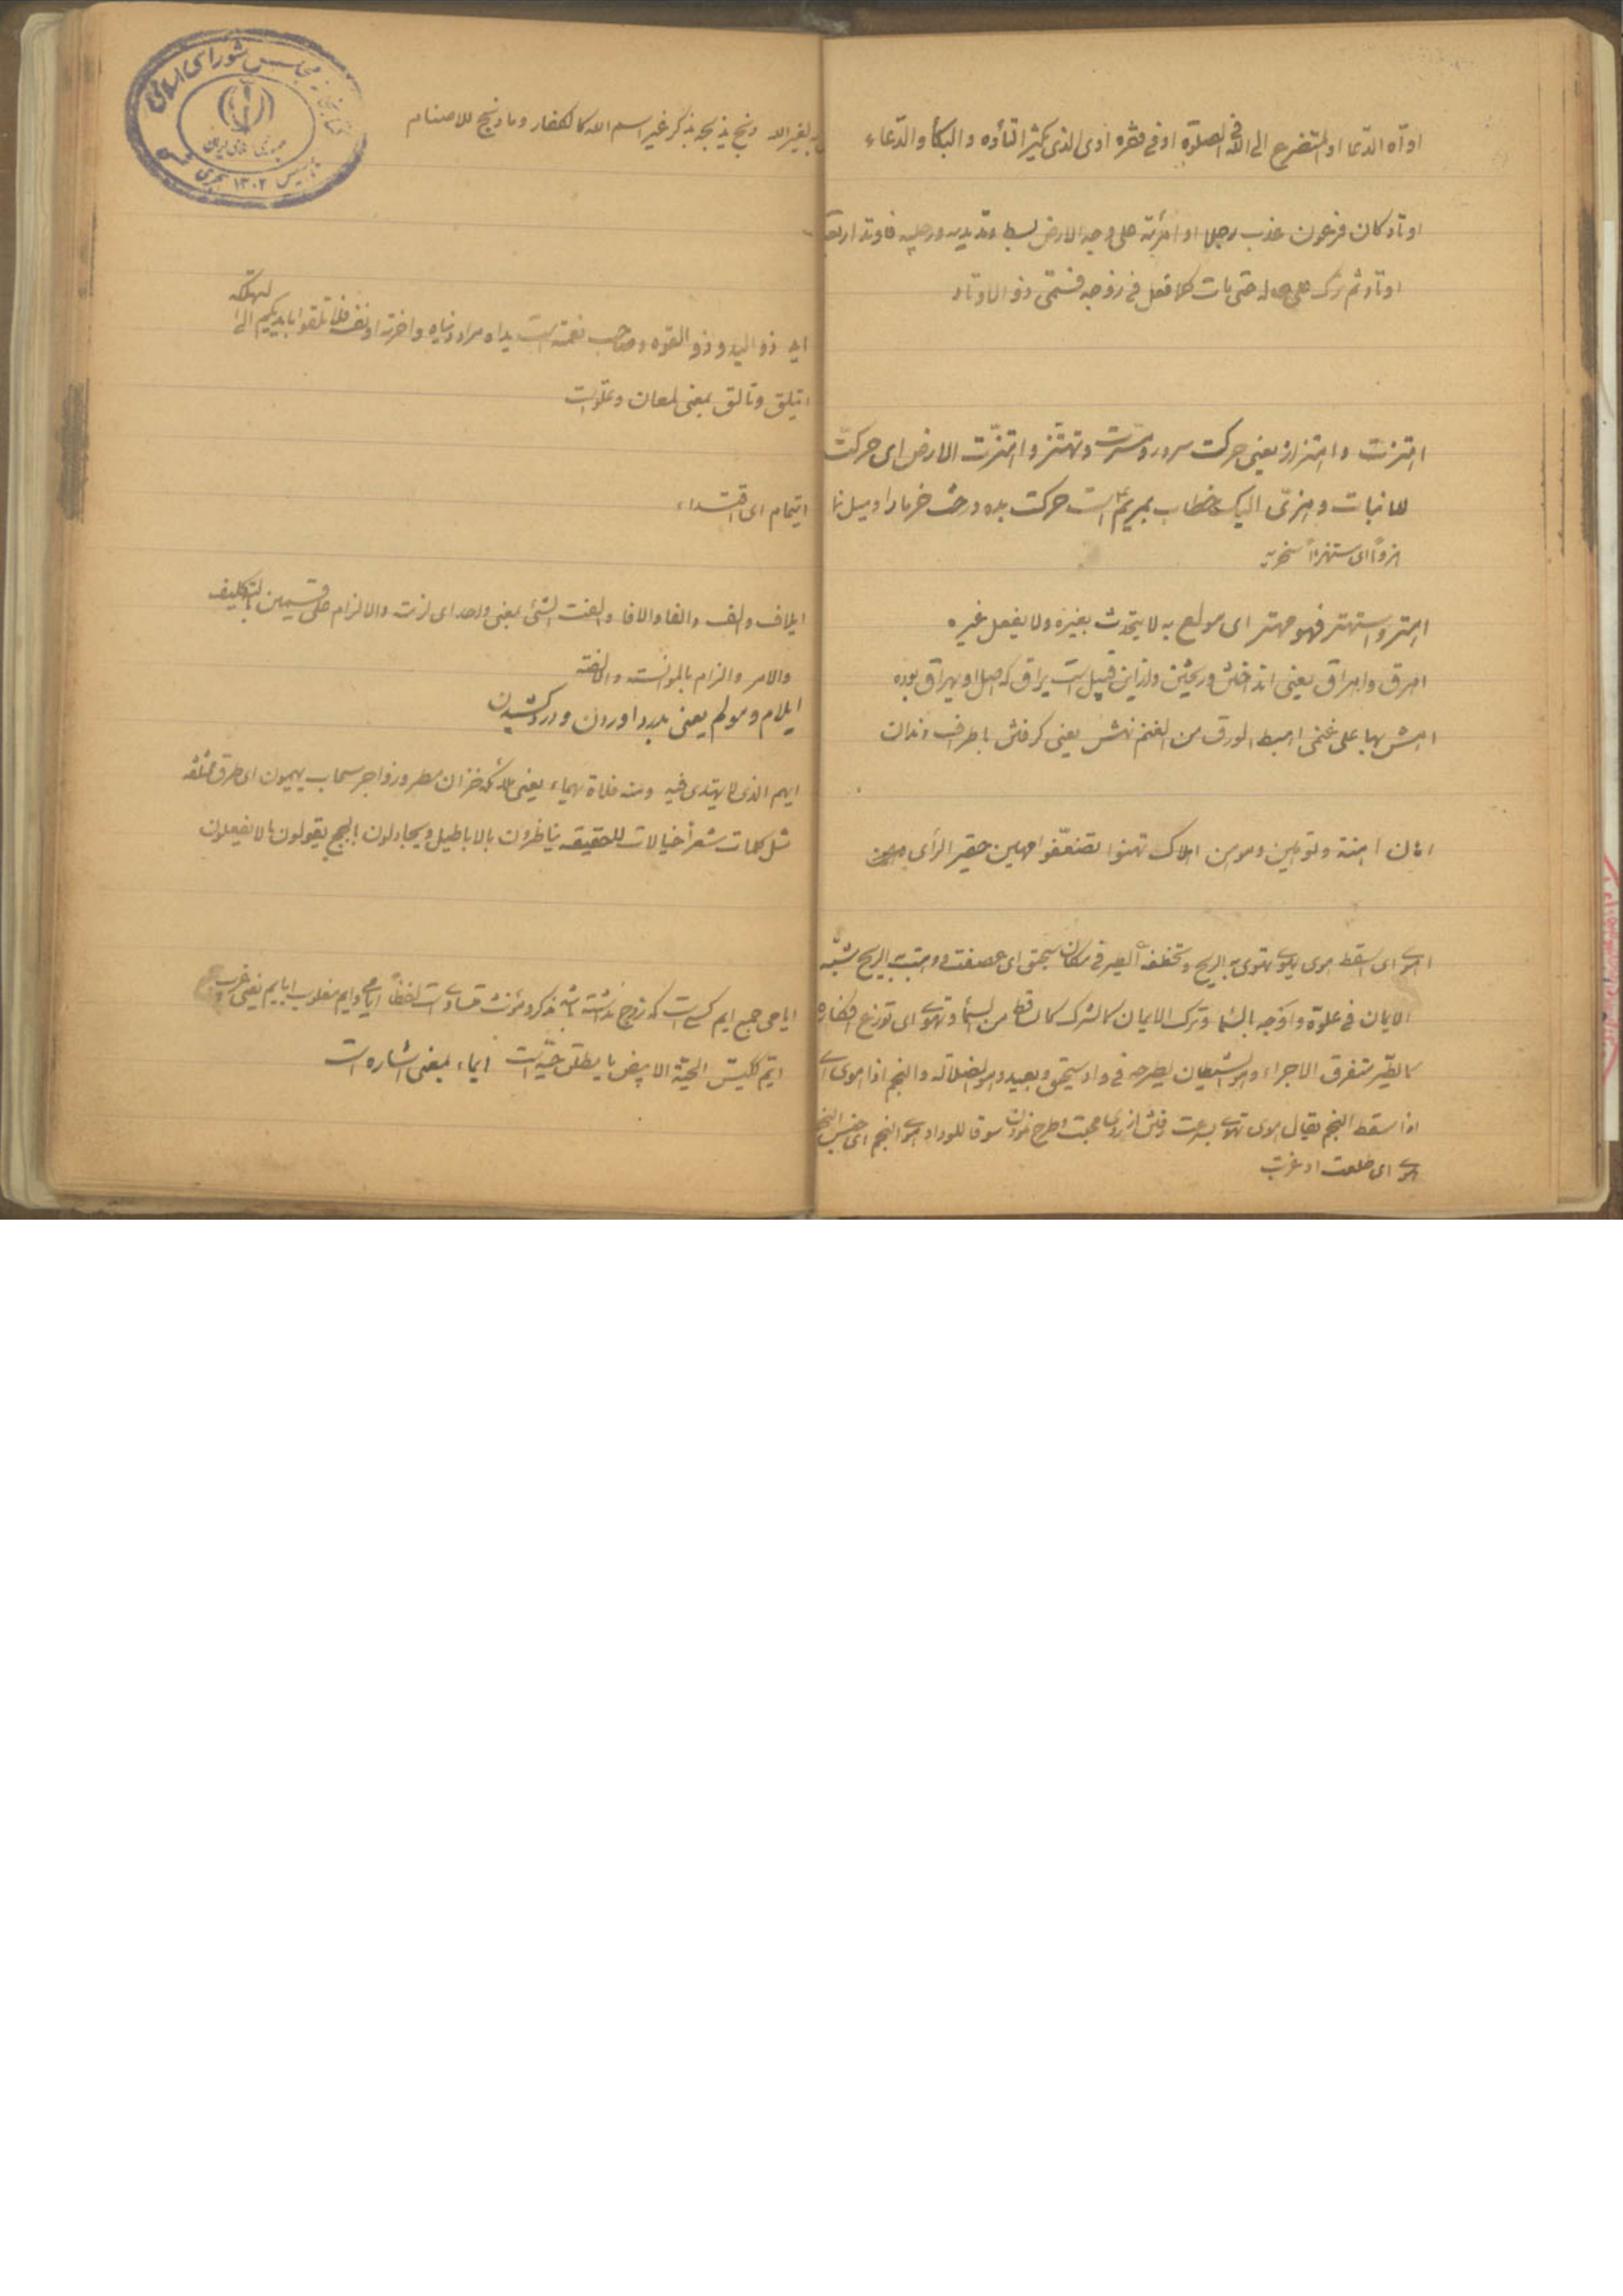 اوآه الدّعا او المتضرع الی الله فی الصلوة او فی فقره اوی الذی یکثر التأوه والبکأ والدّعاء
اوتاد کان فرعون عذب رجلا او امرئة علی وجه الارض بسط وتد یدیه ورجلیه فاوتد اربعة
اوتاد ثم ترک علی حاله حتی مات کلا فعل فی زوجه فسمّی ذو الاوتاد
اهتزت و اهتزاز یعنی حرکت سرور و مسرت و تهتز و اهتزّت الارض ای حرکت
للانبات و هزّی الیک خطاب بمریم است حرکت بده درخت خرما را و میل نما
هزواً ای ستهزءاً سخریه
اهتر و استهتر فهو مهتر ای مولع به لا یتحدث بغیره ولا یفعل غیره
اهرق و اهراق یعنی انداختن و ریختن و از این قبیل است یراق که اصل او یهراق بوده
اهش بها علی غنمی اهبط الورق من الغنم نهش یعنی گرفتن باطراف دندان
اهان اهنته و توهین و موهن اهلاک تهنوا تضعّفوا مهین حقیر الرأی
اهوی ای سقط هوی یهوی تهوی به الریح و تخطفه الطیر فی مکان سحیق ای عصفت و هبت به الریح شبّه
الایمان فی علوّه و اوجه بالسّما و ترک الایمان کالشرک کالساقط من السّمأ و تهوی ای توزع افکاره
کالطّیر متفرق الاجزاء و الشیطان یطرحه فی واد سحیق و بعید و هو الضلالة والنجم اذا هوی ای
اذا سقط النجم یقال هوی تهوی بسرعت رفتن از روی محبت و طرح نمودن سوقا للوداد هوی النجم ای جنس النجم
هوی ای طلعت او غربت
به لغیر الله و نج یذبحه بذکر غیر اسم الله کالکفار و ما ذبح للاصنام
اید ذو الید و ذو القوه و صاحب نعمة است یداه مراد دنیاه و اخرته او نفسه فلا تلقوا بایدیکم الی التهلکه
ایتلق و تالق بمعنی لمعان و علو است
ایتمام ای اقتداء
ایلاف و الف و الفا و الافا و الفت الشیء بمعنی واحد ای لزمت والالزام علی قسمین بالتکلیف
والامر والزام بالموانسته والالفته
ایلام و مولم یعنی بدرد اوردن و درد کشیدن
ایهم الذی لا یهتدی فیه و منه فلاة یهماء یعنی ملائکه خزان مطر و زواجر سحاب یهیمون ای طرق مختلفه
مثل کلمات شعرأ خیالات للحقیقه یناظرون بالاباطیل و یجادلون بالحجج یقولون مالا یفعلون
ایامی جمع ایم کسی است که زوج نداشته باشد مذکر و مؤنث متساوی است لفظاً ایامی و ایم مغلوب ایایم یعنی عزب
ایّم ککیّس الحیّة الابیض یا مطلق حیّه است ایماء بمعنی اشاره است
کتابخانه مجلس شورای اسلامی
جمهوری اسلامی ایران
تاسیس ۱۳۰۲ شمسی